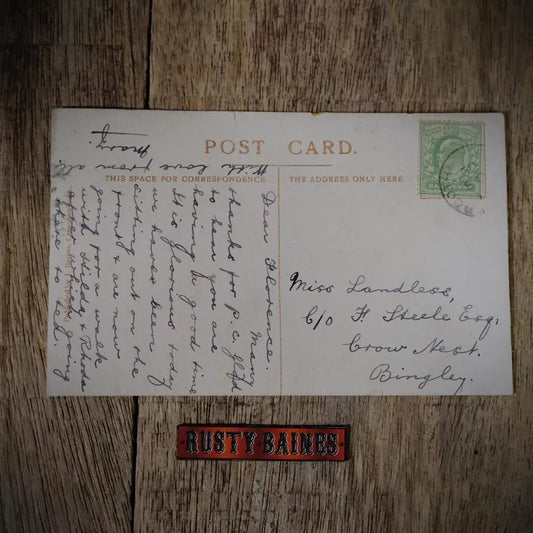 POST CARD.
THIS SPACE FOR CORRESPONDENCE.
THE ADDRESS ONLY HERE.
Dear Florence.
Many
thanks for p.c. Glad
to hear you are
having a good time
It is glorious today
we have been
sitting out on the
front & are now
going for a walk
with & Rhoda
going
to bed.
With love from all.
Mary.
Miss Landless,
C/o F Steele Esq.
Crow Nest.
Bingley.
RUSTY BAINES